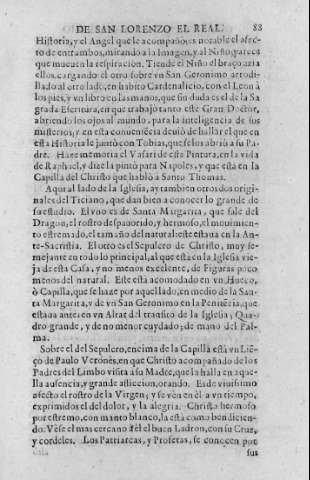 DE SAN LORENZO EL REAL. 88
Historia, y el Angel que le acompaña, es notable el afecto
de entrambos, mirando a la Imagen, y al Niño parece
que mueuen la respiracion. Tiende el Niño el braço azia
ellos, cargando el otro sobre vn San Geronimo arrodillado
al otro lado, en habito Cardenalicio, con el Leon à
los pies, y vn libro en las manos, que sin duda es el de la Sagrada
Escritura, en que trabajò tanto este Gran Doctor,
abriendo los ojos al mundo, para la inteligencia de sus
misterios; y en esta conueniencia deuiò de hallar el que en
esta Historia le juntò con Tobias, que se los abriò a su Padre.
Haze memoria el Vasari de esta Pintura, en la vida
de Raphael, y dize la pintò para Napoles, y que està en la
Capilla del Christo que hablò a Santo Thomas.
Aqui al lado de la Iglesia, ay tambien otros dos originales
del Ticiano, que dan bien a conocer lo grande de
su estudio. El vno es de Santa Margarita, que sale del
Dragon, el rostro despauorido, y hermoso, el mouimiento
estremado, el tamaño del natural: este estaua en la Ante-Sacristia.
El otro es el Sepulcro de Christo, muy semejante
en todo lo principal, al que està en la Iglesia vieja
de esta Casa, y no menos excelente, de Figuras poco
menos del natural. Este està acomodado en vn Hueco,
ò Capilla, que se haze por aquel lado, en medio de la Santa
Margarita, y de vn San Geronimo en la Penitẽcia, que
estaua antes en vn Altar del transito de la Iglesia; Quadro
grande, y de no menor cuydado; de mano del Palma.
Sobre el del Sepulcro, encima de la Capilla està vn Liẽço
de Paulo Veronès, en que Christo acompañado de los
Padres del Limbo visita a su Madre, que la halla en aquella
ausencia, y grande afliccion, orando. Es de viuissimo
afecto el rostro de la Virgen; y se vèn en èl a vn tiempo,
exprimidos el del dolor, y la alegria. Christo hermoso
por estremo, con manto blanco, la està como bendiciendo:
Vèse el mas cercano a èl el buen Ladron, con su Cruz,
y cordeles. Los Patriarcas, y Profetas, se conocen por
sus